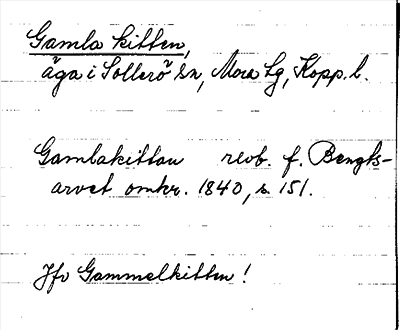 Gamla kitten,
äga i Sollerö sn, Mora tg, Kopp. l.
Gamlakittan revb. f. Bengts-
arvet omkr. 1840, s. 151.
Jfr Gammelkitten!